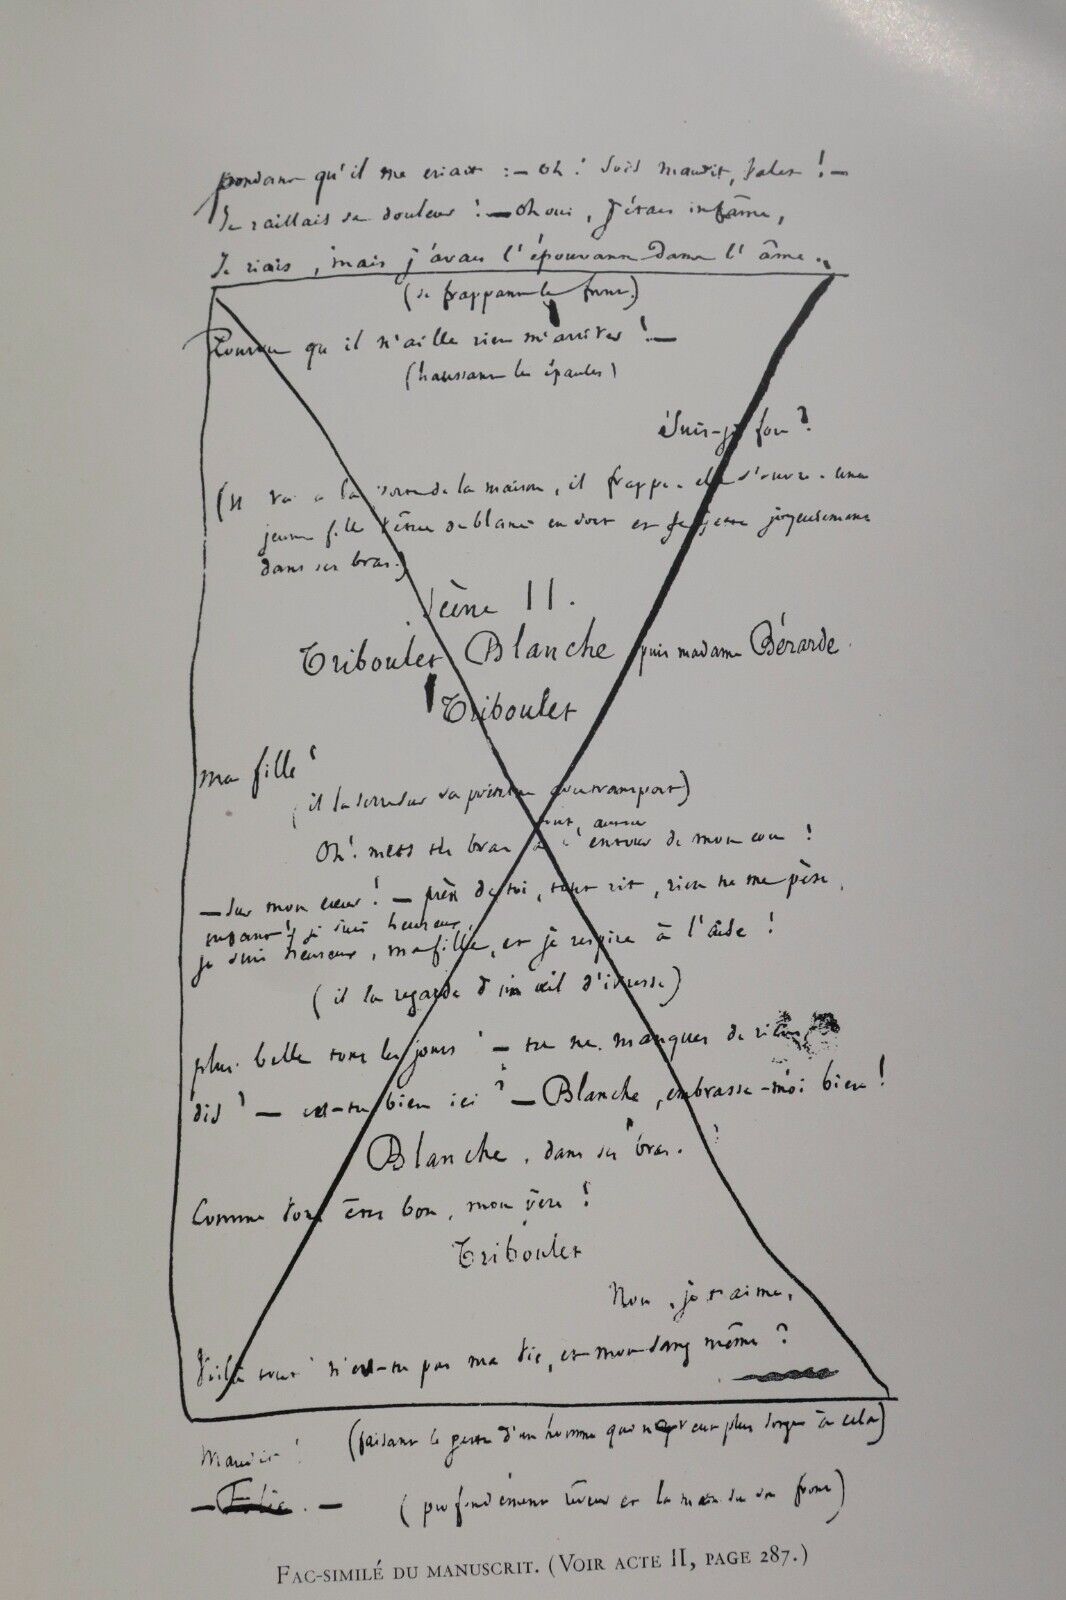 pendant qu'il me criait : — Oh ! Sois maudit, valet ! —
Je raillais sa douleur ! — Oh oui, j'étais infâme,
Je riais, mais j'avais l'épouvante dans l'âme.
(se frappant le front.)
Pourvu qu'il n'aille rien m'arriver ! —
(haussant les épaules)
Suis-je fou ?
(Il va à la porte de la maison, il frappe. elle s'ouvre. une
jeune fille vêtue de blanc en sort et se jette joyeusement
dans ses bras.)
Scène II.
Triboulet Blanche puis madame Bérarde.
Triboulet
ma fille !
(il la serre sur sa poitrine avec transport)
Oh ! mets tes bras à l'entour de mon cou !
— Sur mon cœur ! — près de toi, tout rit, rien ne me pèse,
enfant ! je suis heureux,
je suis heureux, ma fille, et je respire à l'aise !
(il la regarde d'un œil d'ivresse)
plus belle tous les jours ! — tu ne manques de rien,
dis ? — es-tu bien ici ? — Blanche, embrasse-moi bien !
Blanche, dans ses bras.
Comme vous êtes bon, mon père !
Triboulet
Non, je t'aime,
Voilà tout ! n'es-tu pas ma vie, et mon sang même ?
(faisant le geste d'un homme qui ne veut plus songer à cela)
Maudit !
— Folie. — (profondément rêveur et la main sur son front)
FAC-SIMILÉ DU MANUSCRIT. (VOIR ACTE II, PAGE 287.)